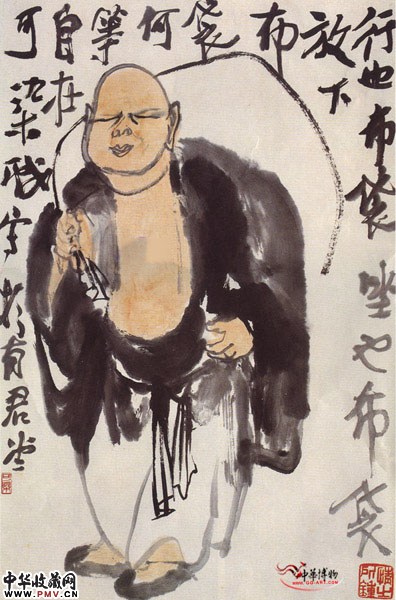 行也布袋坐也布袋
放下
布
袋
何
等
自在
可染戏写於有君堂
中華博物
WWW.GG-ART.COM
中华收藏网
www.PMV.CN